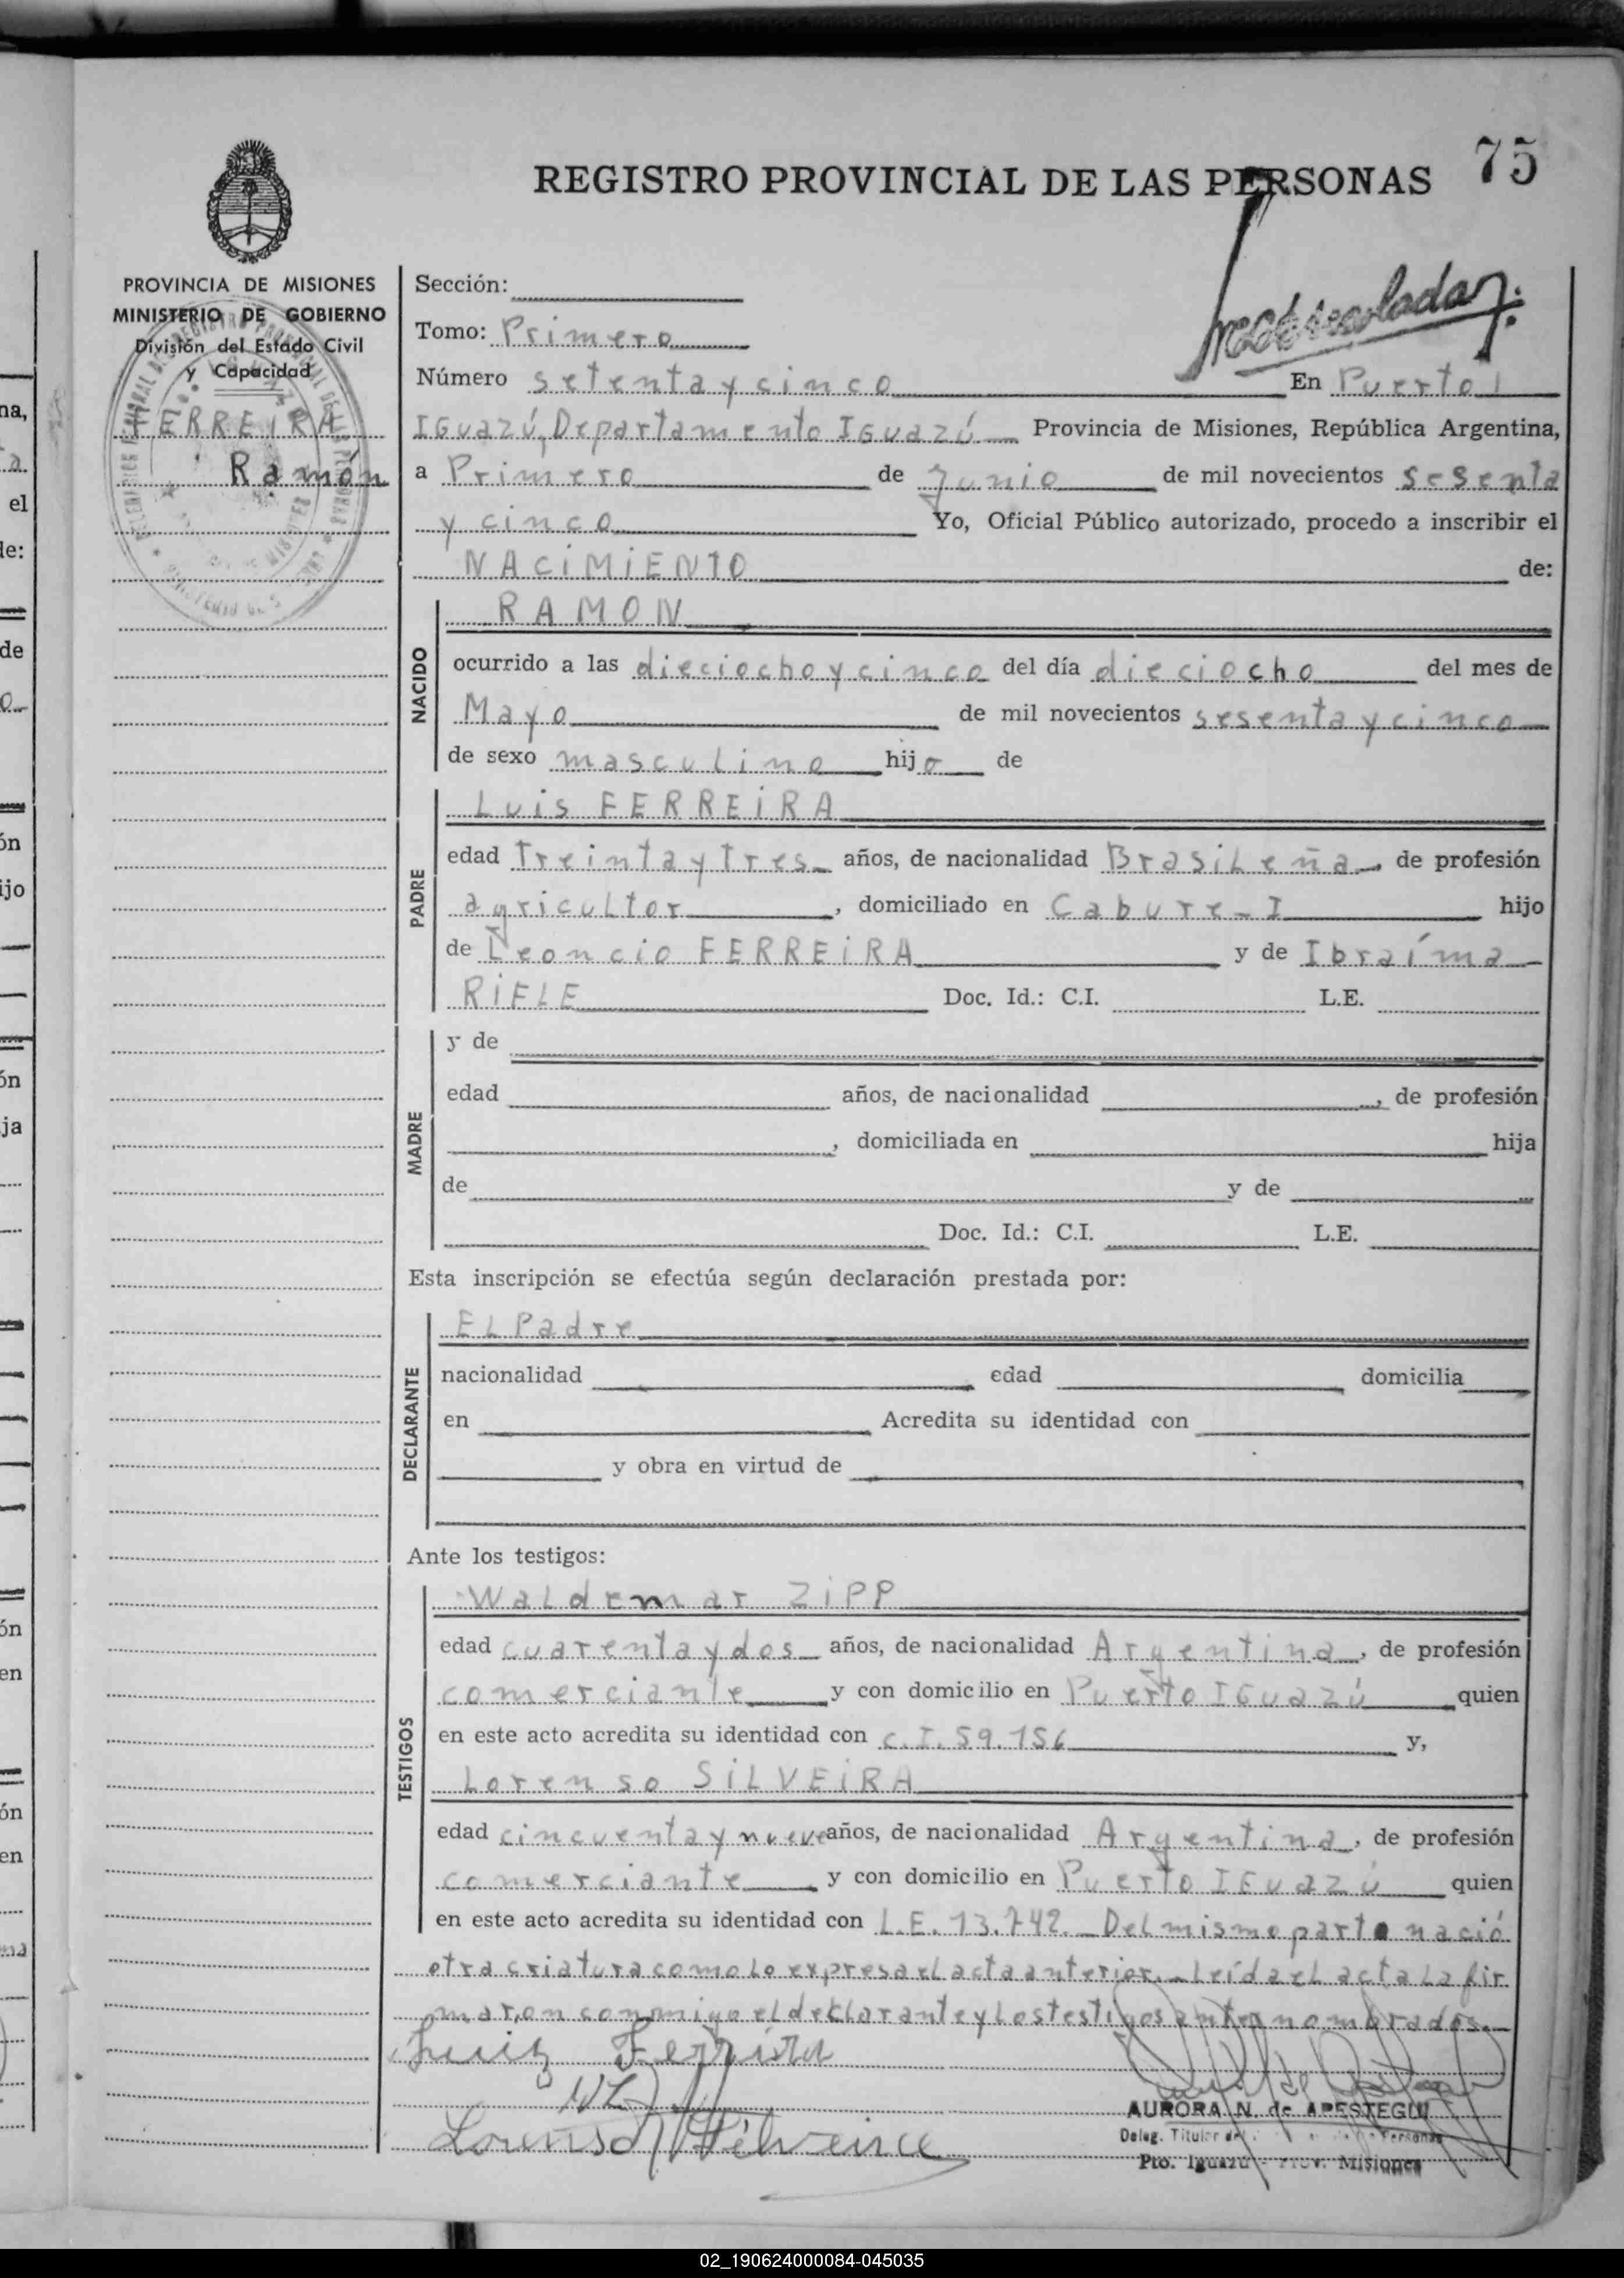 75
REGISTRO PROVINCIAL DE LAS PERSONAS
PROVINCIA DE MISIONES
MINISTERIO DE GOBIERNO
División del Estado Civil
y Capacidad
FERREIRA
Ramón
Sección:
Tomo: Primero
Número setenta y cinco En Puerto
IGuazú, Departamento IGuazú Provincia de Misiones, República Argentina,
a Primero de Junio de mil novecientos sesenta
y cinco Yo, Oficial Público autorizado, procedo a inscribir el
NACIMIENTO de:
NACIDO
RAMON
ocurrido a las dieciocho y cinco del día dieciocho del mes de
Mayo de mil novecientos sesenta y cinco
de sexo masculino hijo de
PADRE
Luis FERREIRA
edad Treinta y Tres años, de nacionalidad Brasileña, de profesión
agricultor, domiciliado en Cabure-I hijo
de Leoncio FERREIRA y de Ibraíma
RIFLE Doc. Id.: C.I. L.E.
MADRE
y de
edad años, de nacionalidad , de profesión
, domiciliada en hija
de y de
Doc. Id.: C.I. L.E.
Esta inscripción se efectúa según declaración prestada por:
DECLARANTE
El Padre
nacionalidad edad domicilia
en Acredita su identidad con
y obra en virtud de
Ante los testigos:
TESTIGOS
Waldemar ZIPP
edad cuarenta y dos años, de nacionalidad Argentina, de profesión
comerciante y con domicilio en Puerto IGuazú quien
en este acto acredita su identidad con C.I. 59.156 y,
Lorenso SILVEIRA
edad cincuenta y nueve años, de nacionalidad Argentina, de profesión
comerciante y con domicilio en Puerto IGuazú quien
en este acto acredita su identidad con L.E. 13.742. Del mismo parto nació
otra criatura como lo expresa el acta anterior. Leída el acta la fir
maron conmigo el declarante y los testigos antes nombrados.
Luiz Ferreira
Lorenso Silveira
AURORA N. de APESTEGUI
Deleg. Titular
Pto. Iguazú - Prov. Misiones
02_190624000084-045035